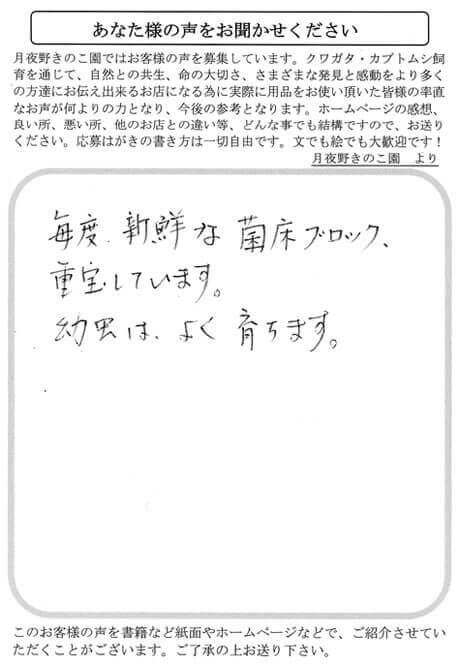 あなた様の声をお聞かせください
月夜野きのこ園ではお客様の声を募集しています。クワガタ・カブトムシ飼
育を通じて、自然との共生、命の大切さ、さまざまな発見と感動をより多く
の方達にお伝え出来るお店になる為に実際に用品をお使い頂いた皆様の率直
なお声が何よりの力となり、今後の参考となります。ホームページの感想、
良い所、悪い所、他のお店との違い等、どんな事でも結構ですので、お送り
ください。応募はがきの書き方は一切自由です。文でも絵でも大歓迎です！
月夜野きのこ園　より
毎度、新鮮な菌床ブロック、
重宝しています。
幼虫は、よく育ちます。
このお客様の声を書籍など紙面やホームページなどで、ご紹介させてい
ただくことがございます。ご了承の上お送り下さい。